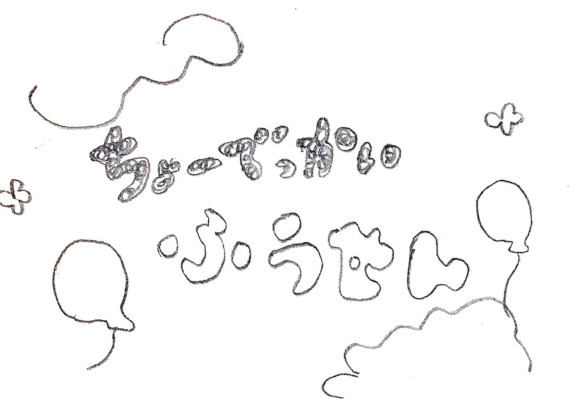 ちょーでっかい
ふうせん